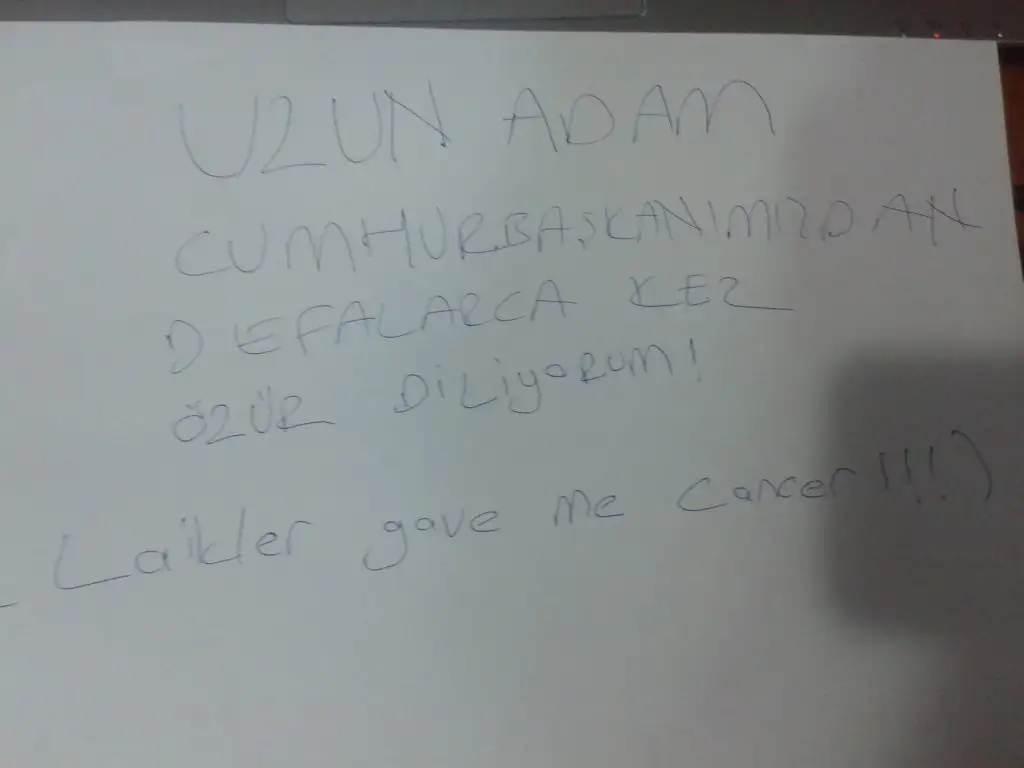 UZUN ADAM
CUMHURBAŞKANIMIZDAN
DEFALARCA KEZ
ÖZÜR DİLİyORUM!
Laikler gave me cancer!!!)